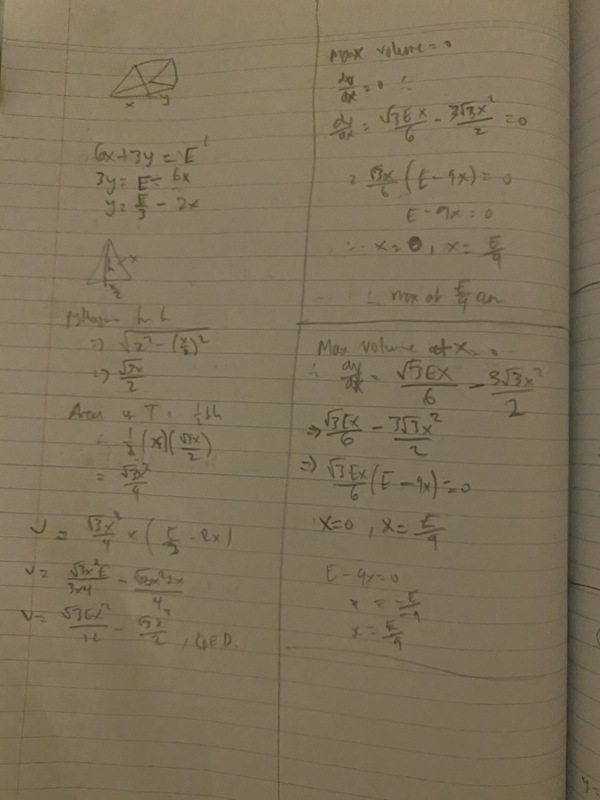 x y
6x+3y = E
3y = E - 6x
y = E/3 - 2x
h x
x/2
⇒ √(x² - (x/2)²)
⇒ √3x/2
Area of T = 1/2 bh
= 1/2 (x)(√3x/2)
= √3x²/4
V = √3x²/4 × (E/3 - 2x)
V = √3x²E/3x4 - √3x²2x/4
V = √3Ex²/12 - √3x³/2, QED.
Max volume = 0
dy/dx = 0 ∴
dy/dx = √3Ex/6 - 3√3x²/2 = 0
= √3x/6 (E - 9x) = 0
E - 9x = 0
∴ x = 0, x = E/9
∴ max at E/9 cm
Max volume at x = 0
∴ dy/dx = √3Ex/6 - 3√3x²/2
⇒ √3Ex/6 - 3√3x²/2
⇒ √3Ex/6 (E - 9x) = 0
x=0, x = E/9
E - 9x = 0
x = -E/-9
x = E/9